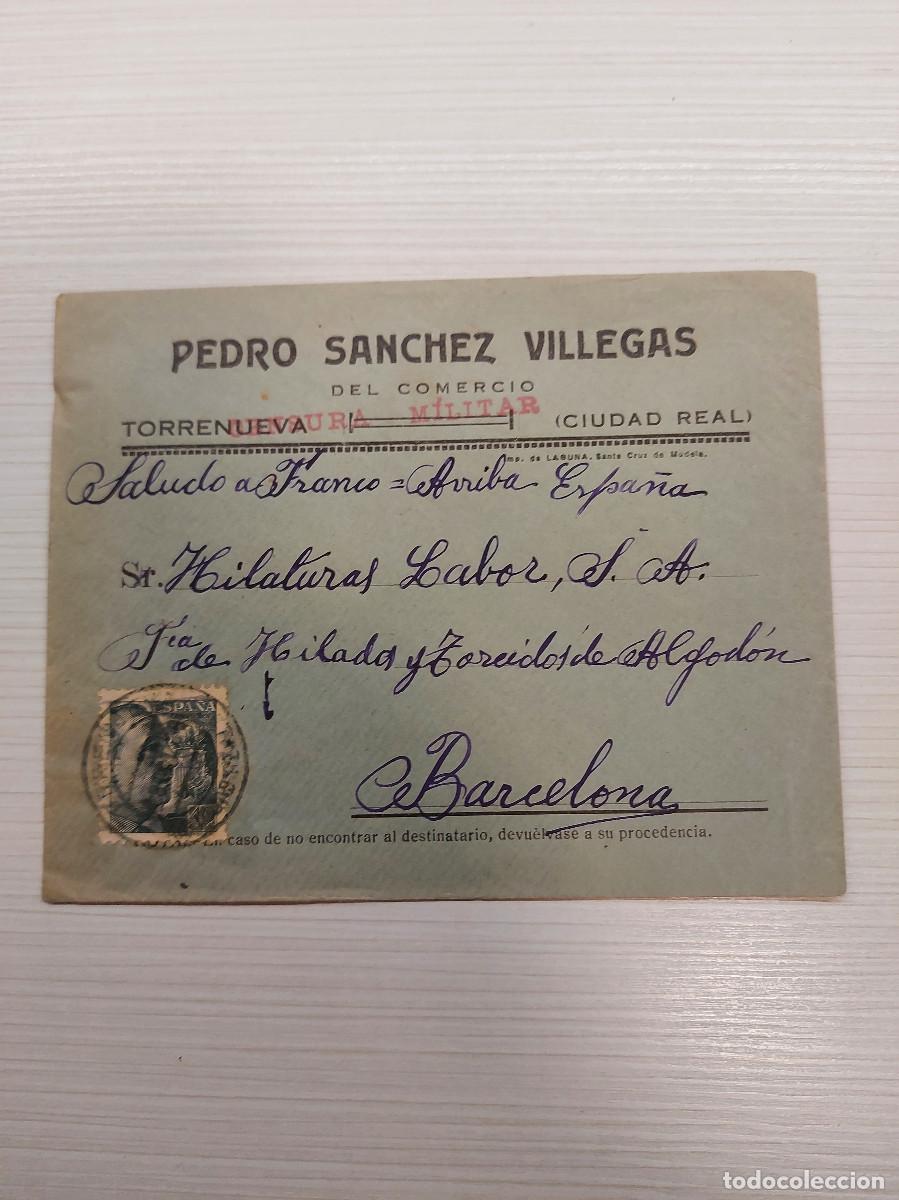 PEDRO SANCHEZ VILLEGAS
DEL COMERCIO
CENSURA MILITAR
TORRENUEVA (CIUDAD REAL)
Imp. de LAGUNA. Santa Cruz de Mudela.
Saludo a Franco = Arriba España
Sr. Hilaturas Labor, S. A.
Fca de Hilados y Torcidos de Algodón
ESPAÑA
Barcelona
En caso de no encontrar al destinatario, devuélvase a su procedencia.
todocoleccion